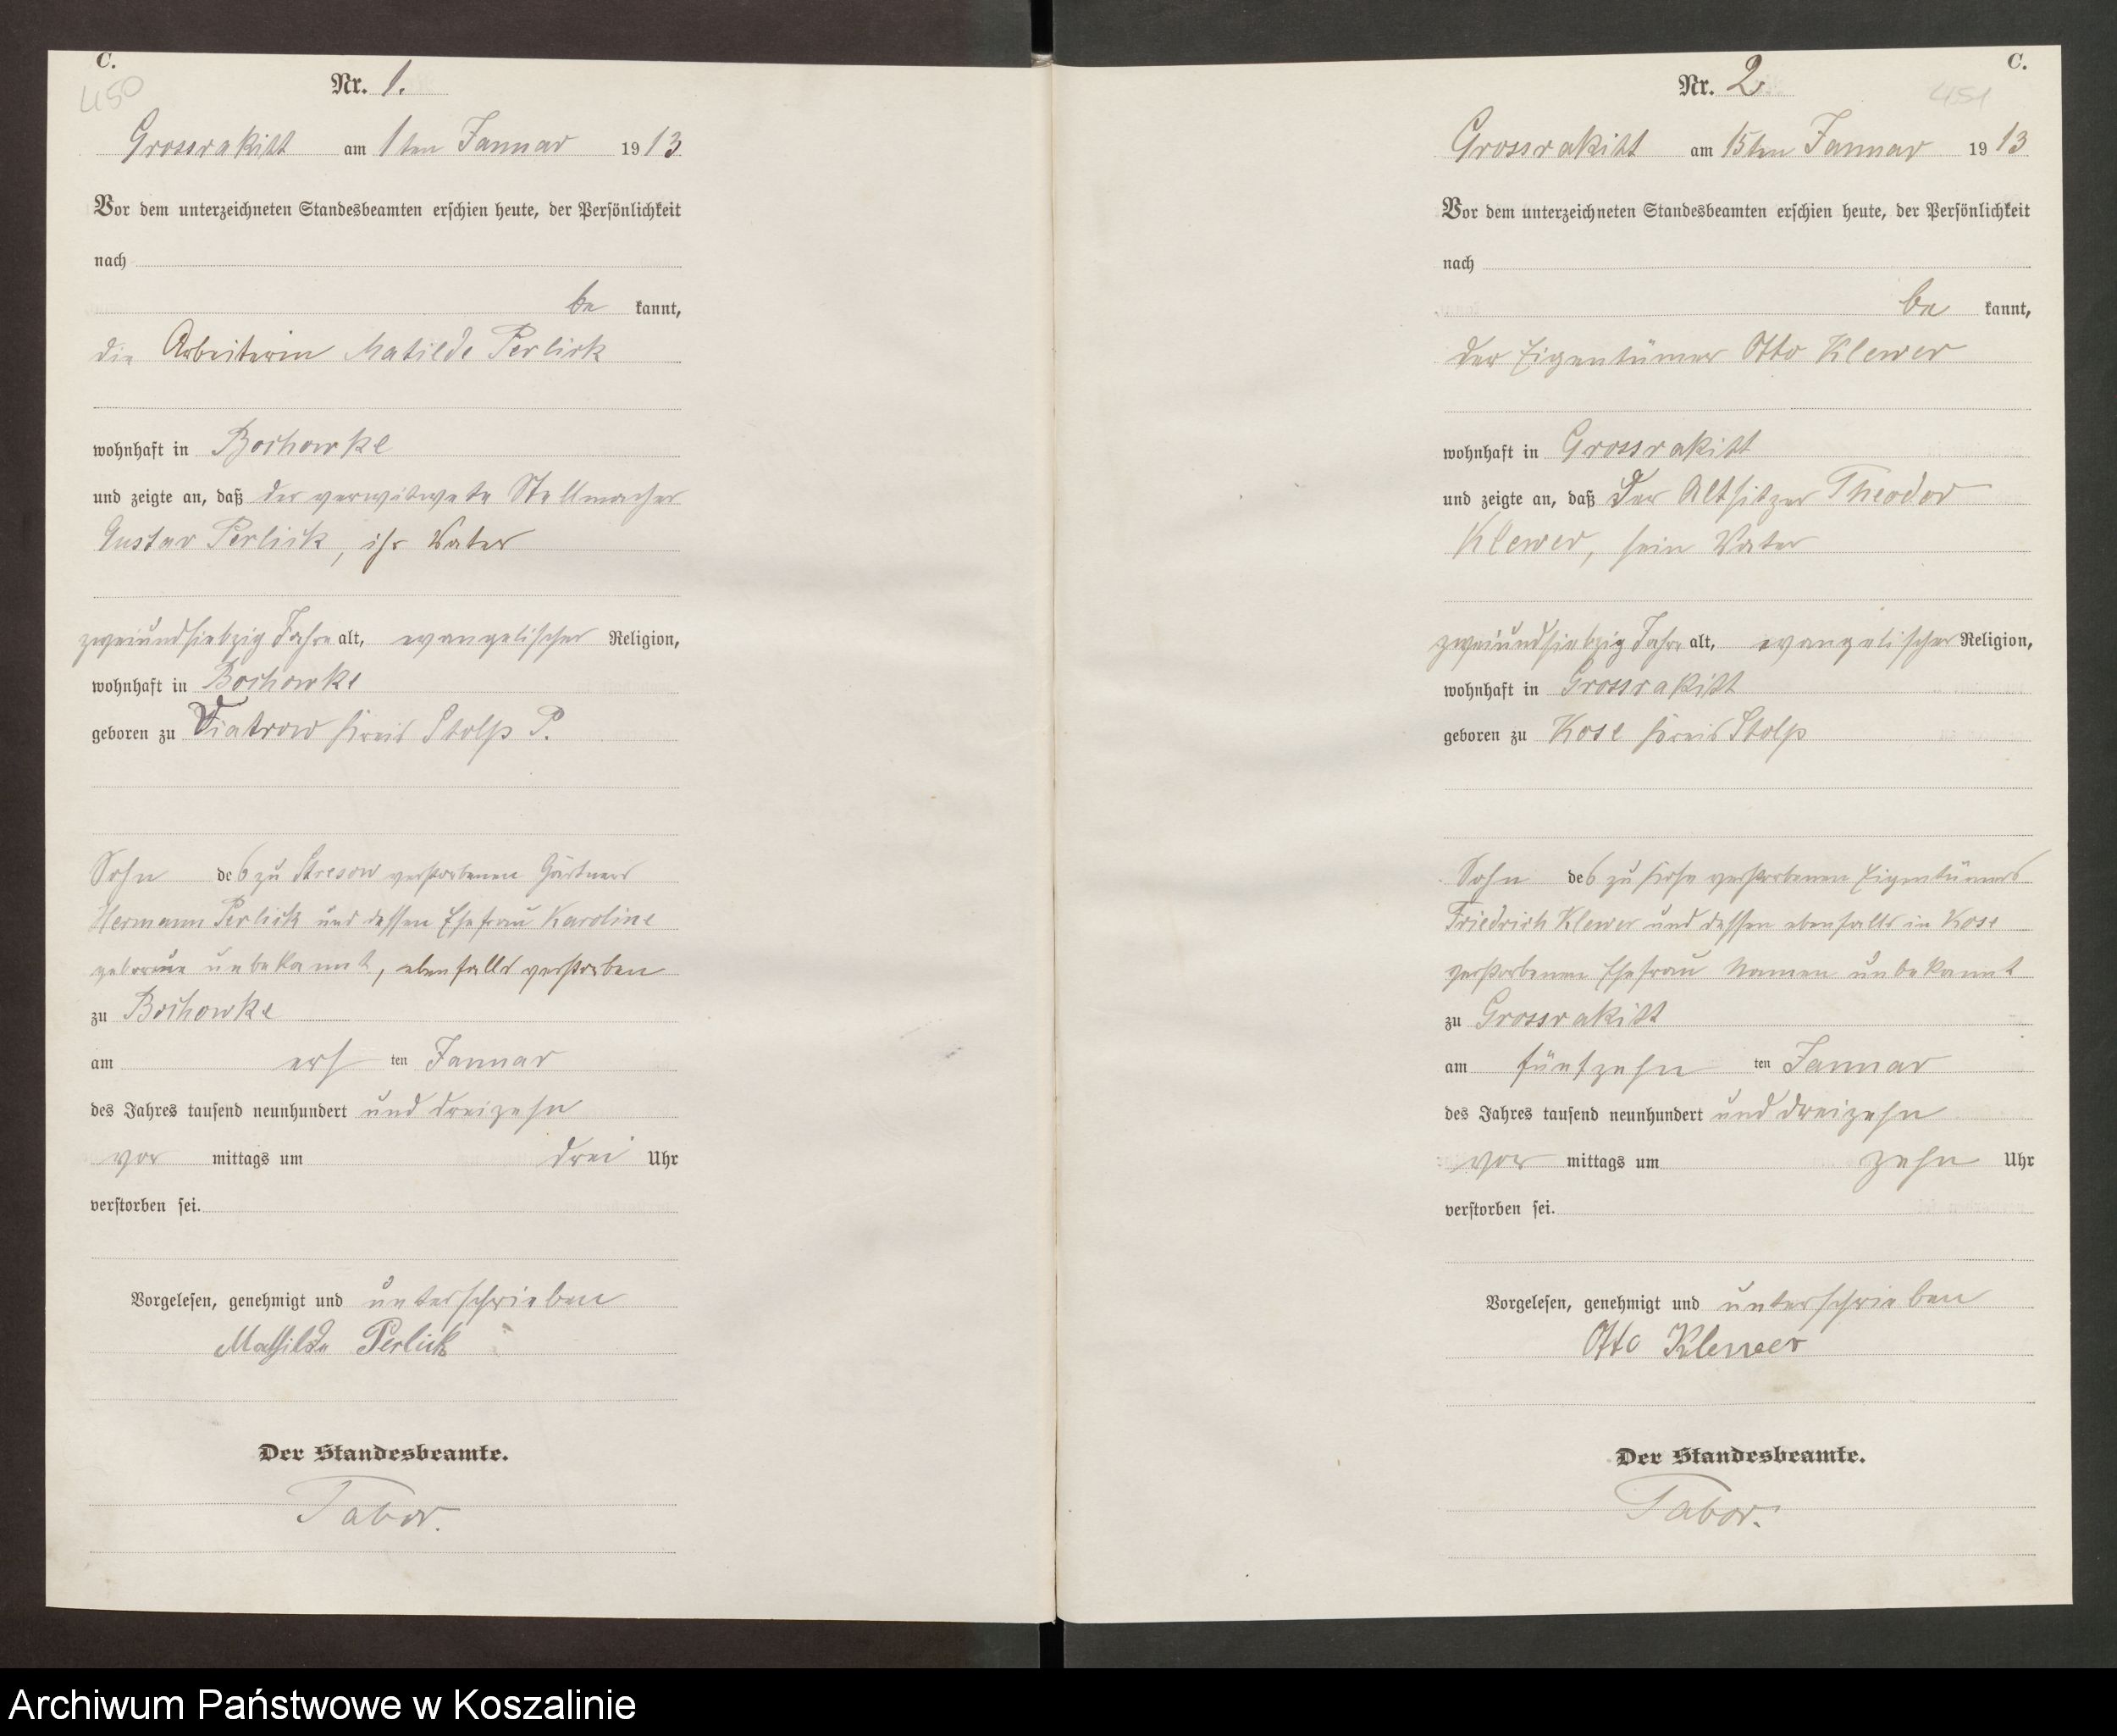 C.
450
Nr. 1.
Grossrakitt am 1ten Januar 1913
Vor dem unterzeichneten Standesbeamten erschien heute, der Persönlichkeit
nach
be kannt,
die Arbeiterin Matilde Perlick
wohnhaft in Bochowke
und zeigte an, daß der verwitwete Stellmacher
Gustav Perlick, ihr Vater
zweiundsiebzig Jahre alt, evangelischer Religion,
wohnhaft in Bochowke
geboren zu Viatrow Kreis Stolp P.
Sohn des zu Stresow verstorbenen Gärtners
Hermann Perlick und dessen Ehefrau Karoline
geborene unbekannt, ebenfalls verstorben
zu Bochowke
am ers ten Januar
des Jahres tausend neunhundert und dreizehn
vor mittags um drei Uhr
verstorben sei.
Vorgelesen, genehmigt und unterschrieben
Mathilde Perlick
Der Standesbeamte.
Tabor.
C.
451
Nr. 2
Grossrakitt am 15ten Januar 1913
Vor dem unterzeichneten Standesbeamten erschien heute, der Persönlichkeit
nach
be kannt,
der Eigentümer Otto Klewer
wohnhaft in Grossrakitt
und zeigte an, daß der Altsitzer Theodor
Klewer, sein Vater
zweiundsiebzig Jahre alt, evangelischer Religion,
wohnhaft in Grossrakitt
geboren zu Kose Kreis Stolp
Sohn des zu Kose verstorbenen Eigentümers
Friedrich Klewer und dessen ebenfalls in Kose
verstorbenen Ehefrau Namen unbekannt
zu Grossrakitt
am fünfzehn ten Januar
des Jahres tausend neunhundert und dreizehn
vor mittags um zehn Uhr
verstorben sei.
Vorgelesen, genehmigt und unterschrieben
Otto Klewer
Der Standesbeamte.
Tabor.
Archiwum Państwowe w Koszalinie